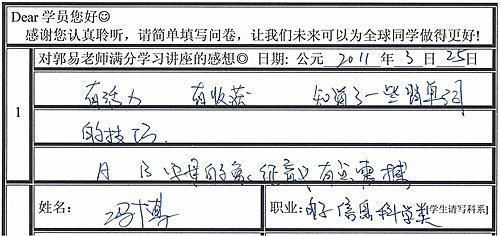 Dear 学员您好☺
感谢您认真聆听，请简单填写问卷，让我们未来可以为全球同学做得更好!
对郭易老师满分学习讲座的感想☺ 日期: 公元 2011 年 3 月 25 日
1
有活力 有收获 知道了一些背单词
的技巧.
A B 字母的
姓名: 冯博 职业: 电子信息科学类 [学生请写科系]